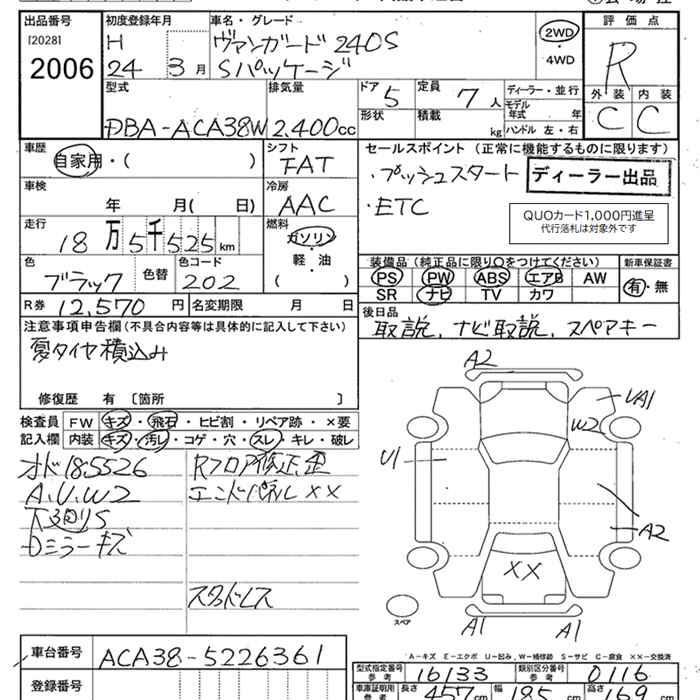 出品番号 初度登録年月 車名・グレード 評価点
[2028] H ヴァンガード240S 2WD R
2006 24年 3月 Sパッケージ 4WD
外装 内装
C C
型式 排気量 ドア 定員 ディーラー・並行
DBA-ACA38W 2,400cc 5 7人 モデル年式 年
形状 積載 kg ハンドル 左・右
車歴 シフト セールスポイント (正常に機能するものに限ります)
自家用・( ) FAT ・プッシュスタート ディーラー出品
車検 冷房 ・ETC
年 月( 日) AAC QUOカード1,000円進呈
代行落札は対象外です
走行 燃料
18万5千525km ガソリン
軽・油
( )
色 色替 色コード 装備品(純正品に限り○をつけてください) 新車保証書
ブラック 202 PS PW ABS エアB AW 有・無
SR ナビ TV カワ
R券 12,570円 名変期限 月 日 後日品
取説、ナビ取説、スペアキー
注意事項申告欄(不具合内容等は具体的に記入して下さい)
夏タイヤ積込み
修復歴 有〔箇所 〕
検査員 FW キズ・飛石・ヒビ割・リペア跡・×要
記入欄 内装 キズ・汚レ・コゲ・穴・スレ・キレ・破レ
オド185526 Rフロア修正歪
A.U.W2 エンドパネル××
下回りS
Dミラーキズ
スタッドレス
A2
UA1
W2
U1
A2
××
スペア
A1 A1
A-キズ E-エクボ U-凹み W-補修跡 S-サビ C-腐食 ××-交換済
車台番号 ACA38-5226361
登録番号
型式指定番号 参考 16133 類別区分番号 参考 0116
車庫証明用 参考 長さ 457cm 幅 185cm 高さ 169cm